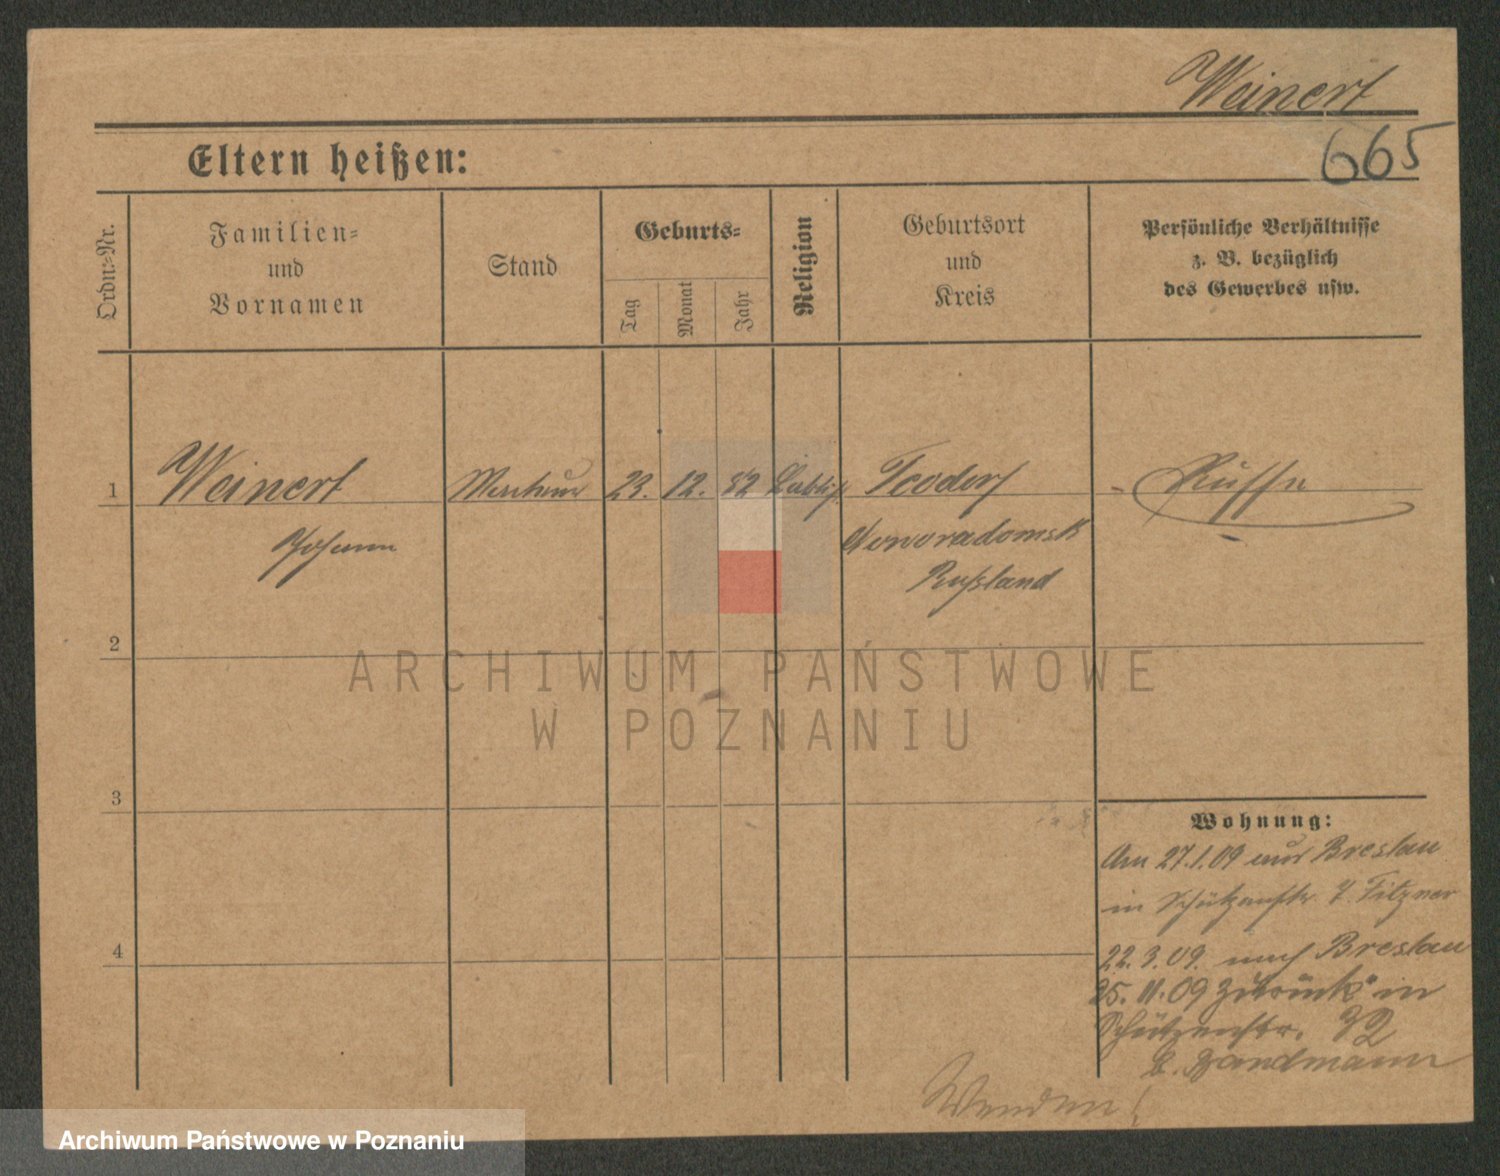 Weinert
665
Eltern heißen:
Ordn.-Nr.
Familien-
und
Vornamen
Stand
Geburts-
Tag
Monat
Jahr
Religion
Geburtsort
und
Kreis
Persönliche Verhältnisse
z. B. bezüglich
des Gewerbes usw.
1 Weinert 23. 12. 82 Teodorf Russe
Johann Noworadomsk
Russland
2
ARCHIWUM PAŃSTWOWE
W POZNANIU
3
Wohnung:
Am 27.1.09 aus Breslau
in Schützenstr. 7. Fitzner
4
22.3.09. nach Breslau
25.11.09 zurück in
Schützenstr. 32
b. Bandmann
Wenden!
Archiwum Państwowe w Poznaniu